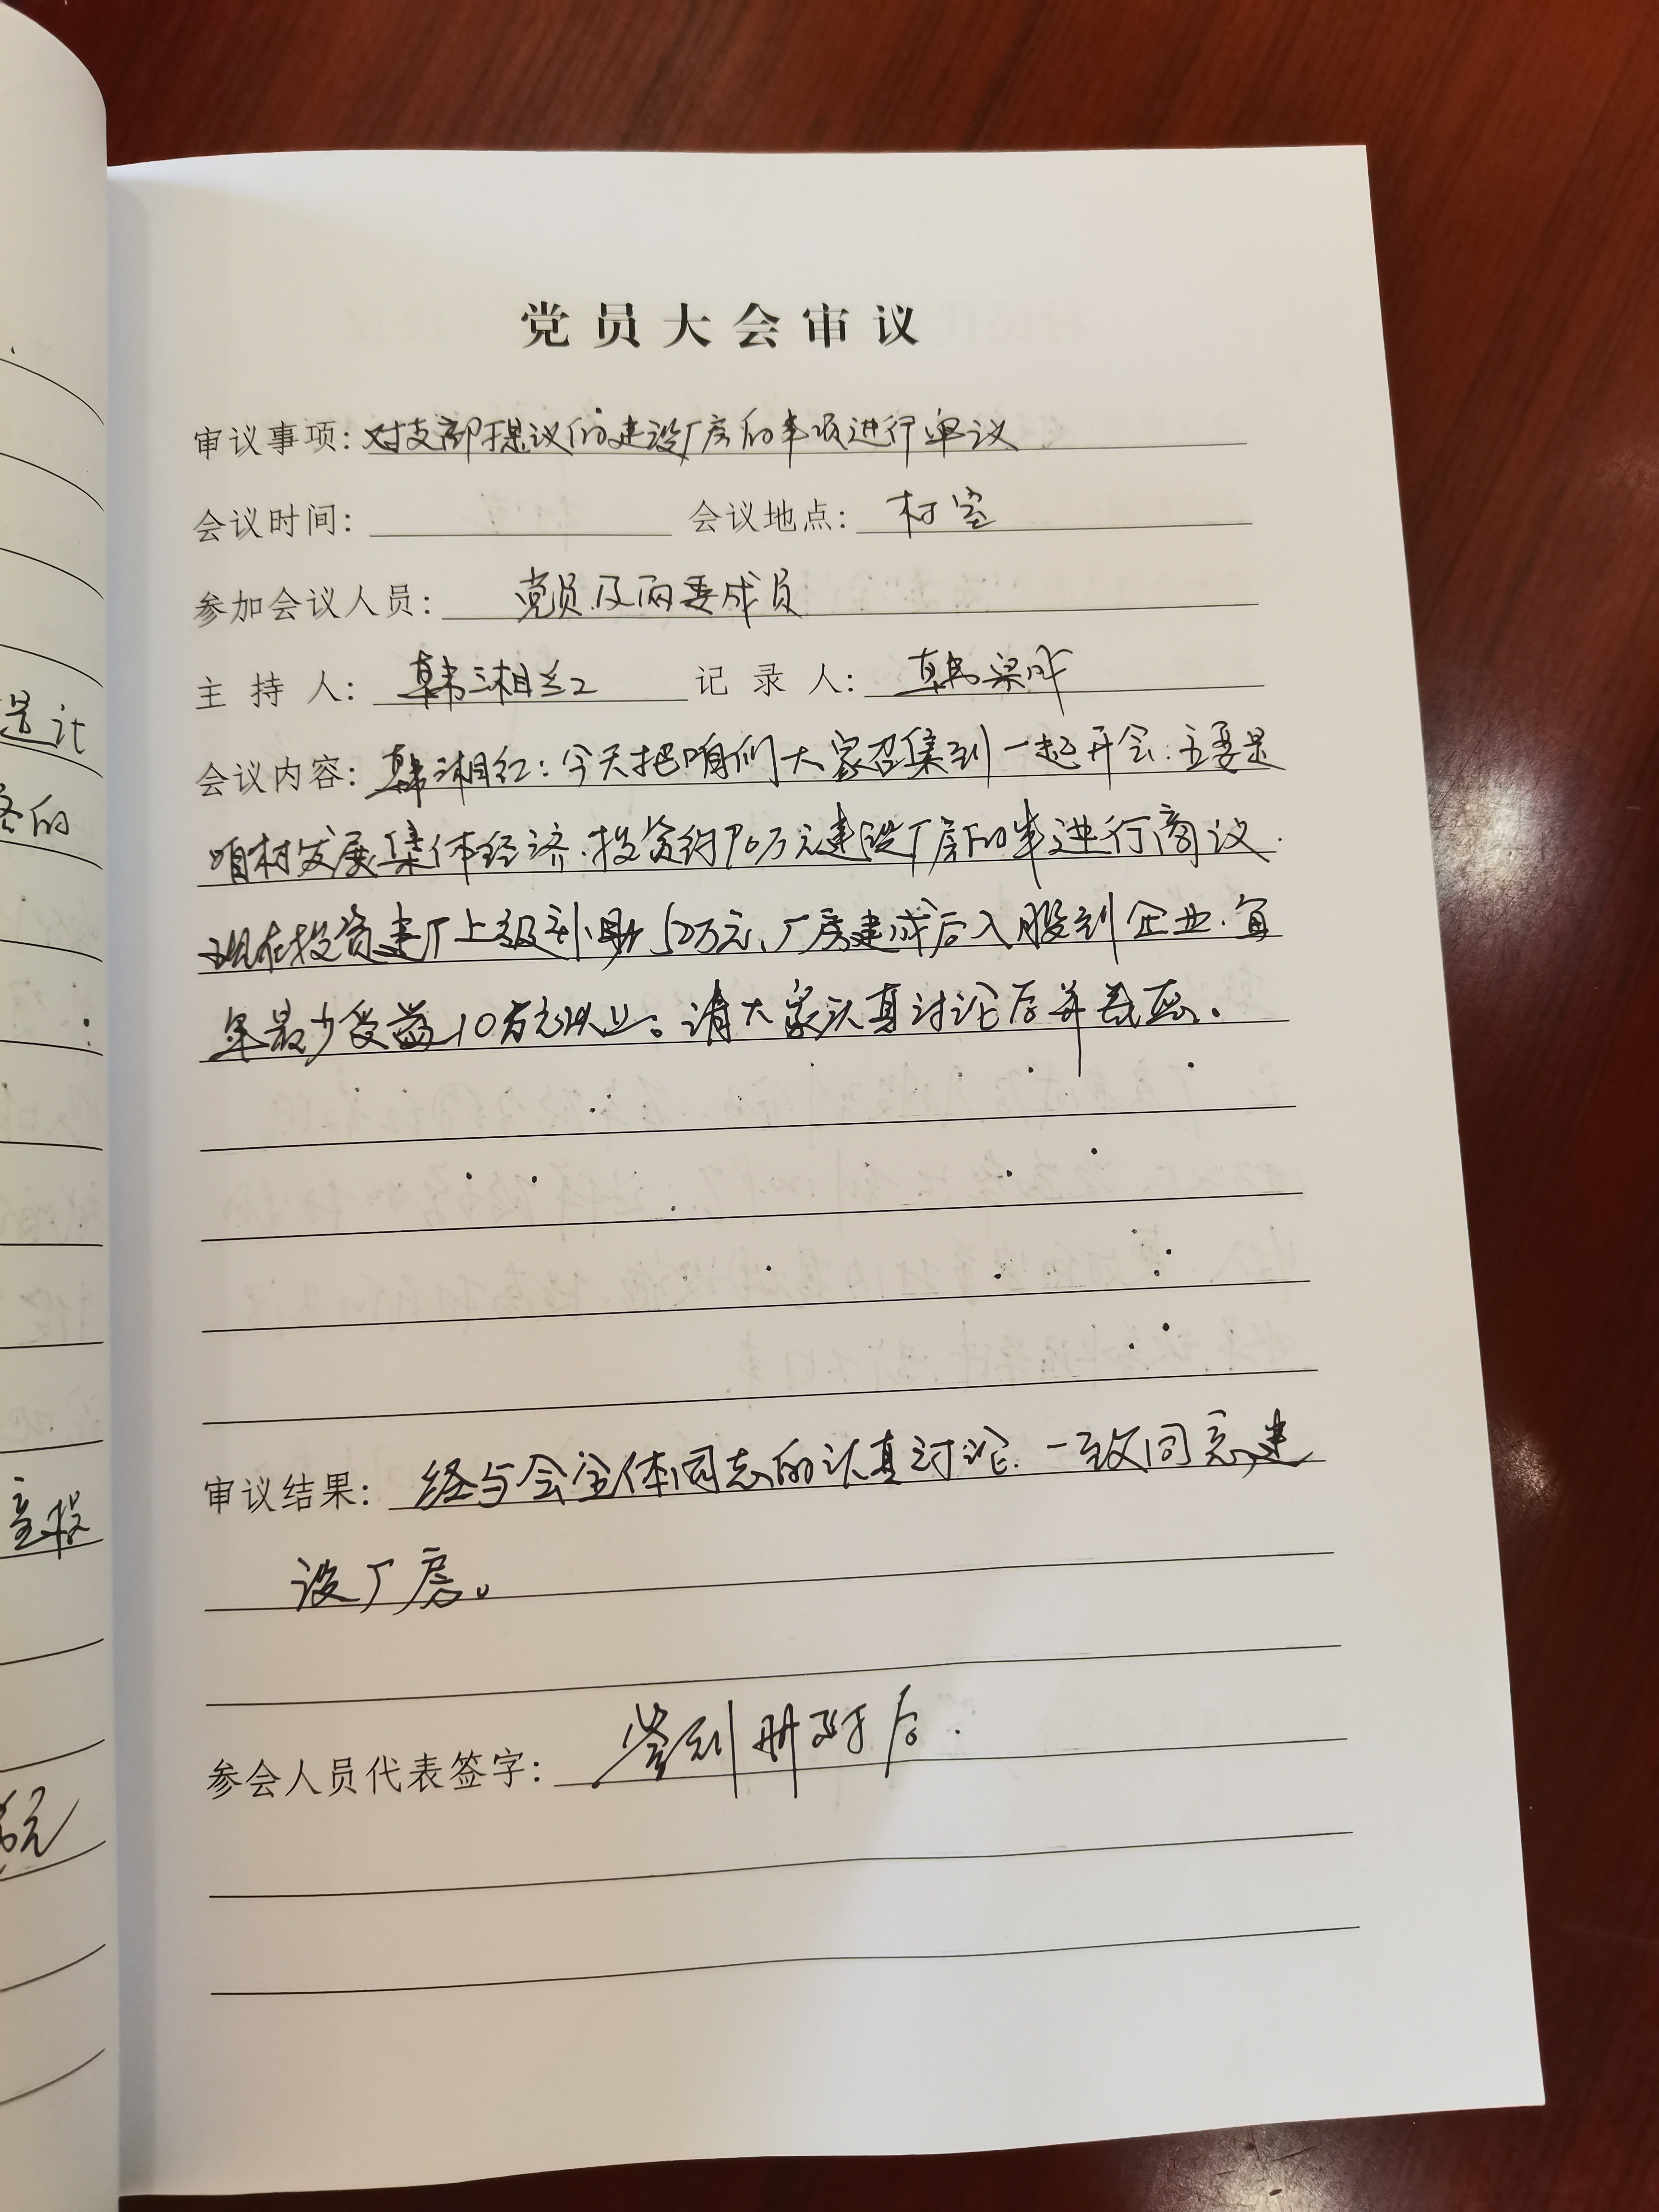 党员大会审议
审议事项：对支部提议的建设厂房的事项进行审议
会议时间： 会议地点：村室
参加会议人员：党员及两委成员
主持人：韩湘红 记录人：韩梁成
会议内容：韩湘红：今天把咱们大家召集到一起开会.主要是
咱村发展集体经济.投资约70万元建设厂房的事进行商议.
现在投资建厂上级补助52万元、厂房建成后入股到企业.每
年最少受益10万元以上。请大家认真讨论后并表态.
审议结果：经与会全体同志的认真讨论.一致同意建
设厂房。
参会人员代表签字：签到册附后.
是让
的
意投
元